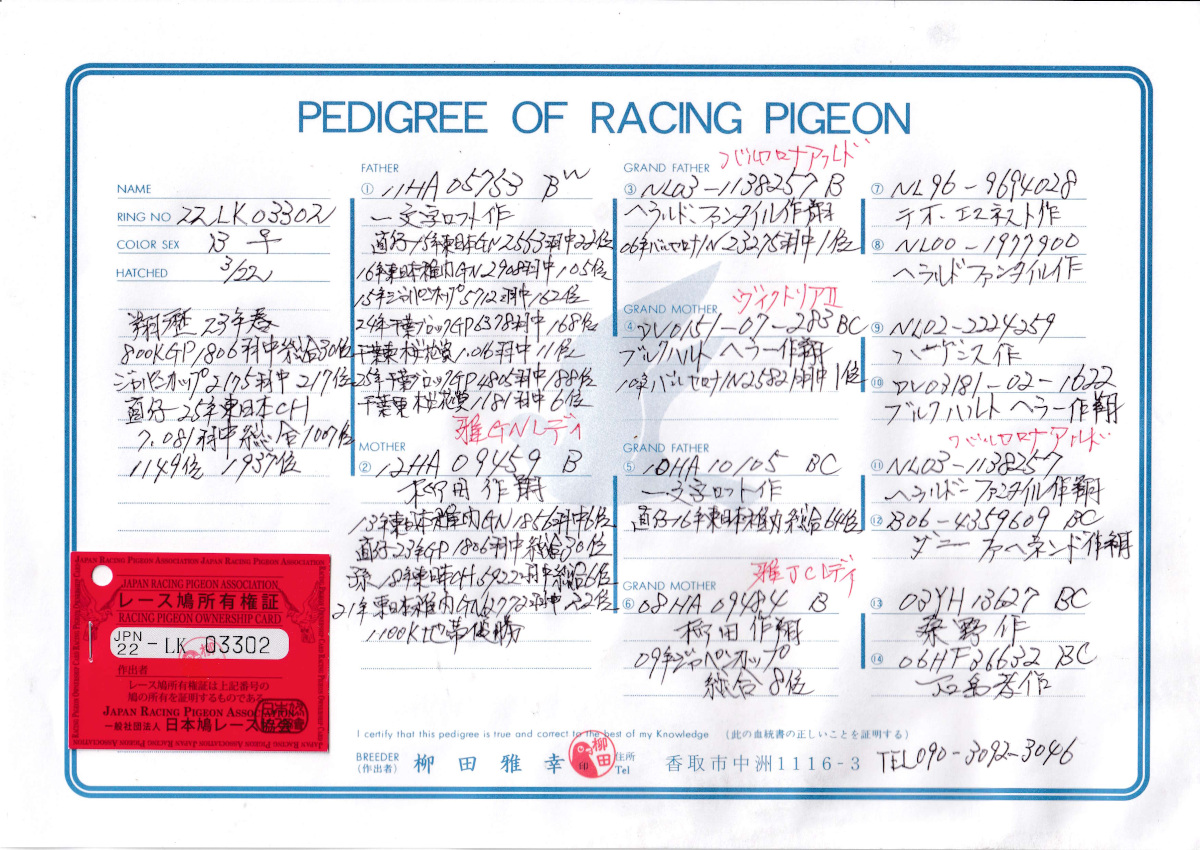 PEDIGREE OF RACING PIGEON
NAME
RING NO 22LK03302
COLOR SEX B ♀
HATCHED 3/22
翔歴 23年春
800KGP1806羽中総合30位
ジャパンカップ2175羽中217位
直仔-25年東日本CH
7.081羽中総合1007位
1149位 1937位
FATHER
① 11HA05753 BW
一文字ロフト作
直仔-15年東日本GN2553羽中22位
16年東日本稚内GN2908羽中105位
15年ジャパンカップ5712羽中162位
24年千葉ブロックGP6378羽中168位
千葉東桜花賞1.016羽中11位
25年千葉ブロックGP4805羽中188位
千葉東桜花賞1181羽中6位
雅GNレディ
MOTHER
② 12HA09459 B
柳田作翔
13年東日本稚内GN1856羽中6位
直仔-23年GP1806羽中総合30位
孫-18年東日本CH5922羽中総合6位
21年東日本稚内GN2772羽中22位
1100K地帯優勝
バルセロナアルド
GRAND FATHER
③ NL03-1138257 B
ヘラルド・ファンタイル作翔
06年バルセロナIN23275羽中1位
ヴィクトリアⅡ
GRAND MOTHER
④ DV0151-07-283 BC
ブルクハルト ヘラー作翔
10年バルセロナIN25821羽中1位
GRAND FATHER
⑤ 10HA10105 BC
一文字ロフト作
直仔-16年東日本稚内総合64位
雅JCレディ
GRAND MOTHER
⑥ 08HA09484 B
柳田作翔
09年ジャパンカップ
総合8位
⑦ NL96-9694028
テオ・エルネスト作
⑧ NL00-1977900
ヘラルドファンタイル作
⑨ NL02-2224259
ハーザンス作
⑩ DV03181-02-1622
ブルクハルト ヘラー作翔
バルセロナアルド
⑪ NL03-1138257
ヘラルド・ファンタイル作翔
⑫ B06-4359609 BC
ダニー ファヘネンド作翔
⑬ 03YH13627 BC
桑野作
⑭ 06HF36632 BC
作
JAPAN RACING PIGEON ASSOCIATION JAPAN RACING PIGEON ASSOCIATION
JAPAN RACING PIGEON ASSOCIATION
レース鳩所有権証
RACING PIGEON OWNERSHIP CARD
JPN 22 - LK 03302
作出者
レース鳩所有権証は上記番号の
鳩の所有を証明するものである
JAPAN RACING PIGEON ASSOCIATION
一般社団法人 日本鳩レース協会
I certify that this pedigree is true and correct to the best of my Knowledge (此の血統書の正しいことを証明する)
BREEDER (作出者) 柳田雅幸 印 柳田 住所 Tel 香取市中洲1116-3 TEL090-3092-3046